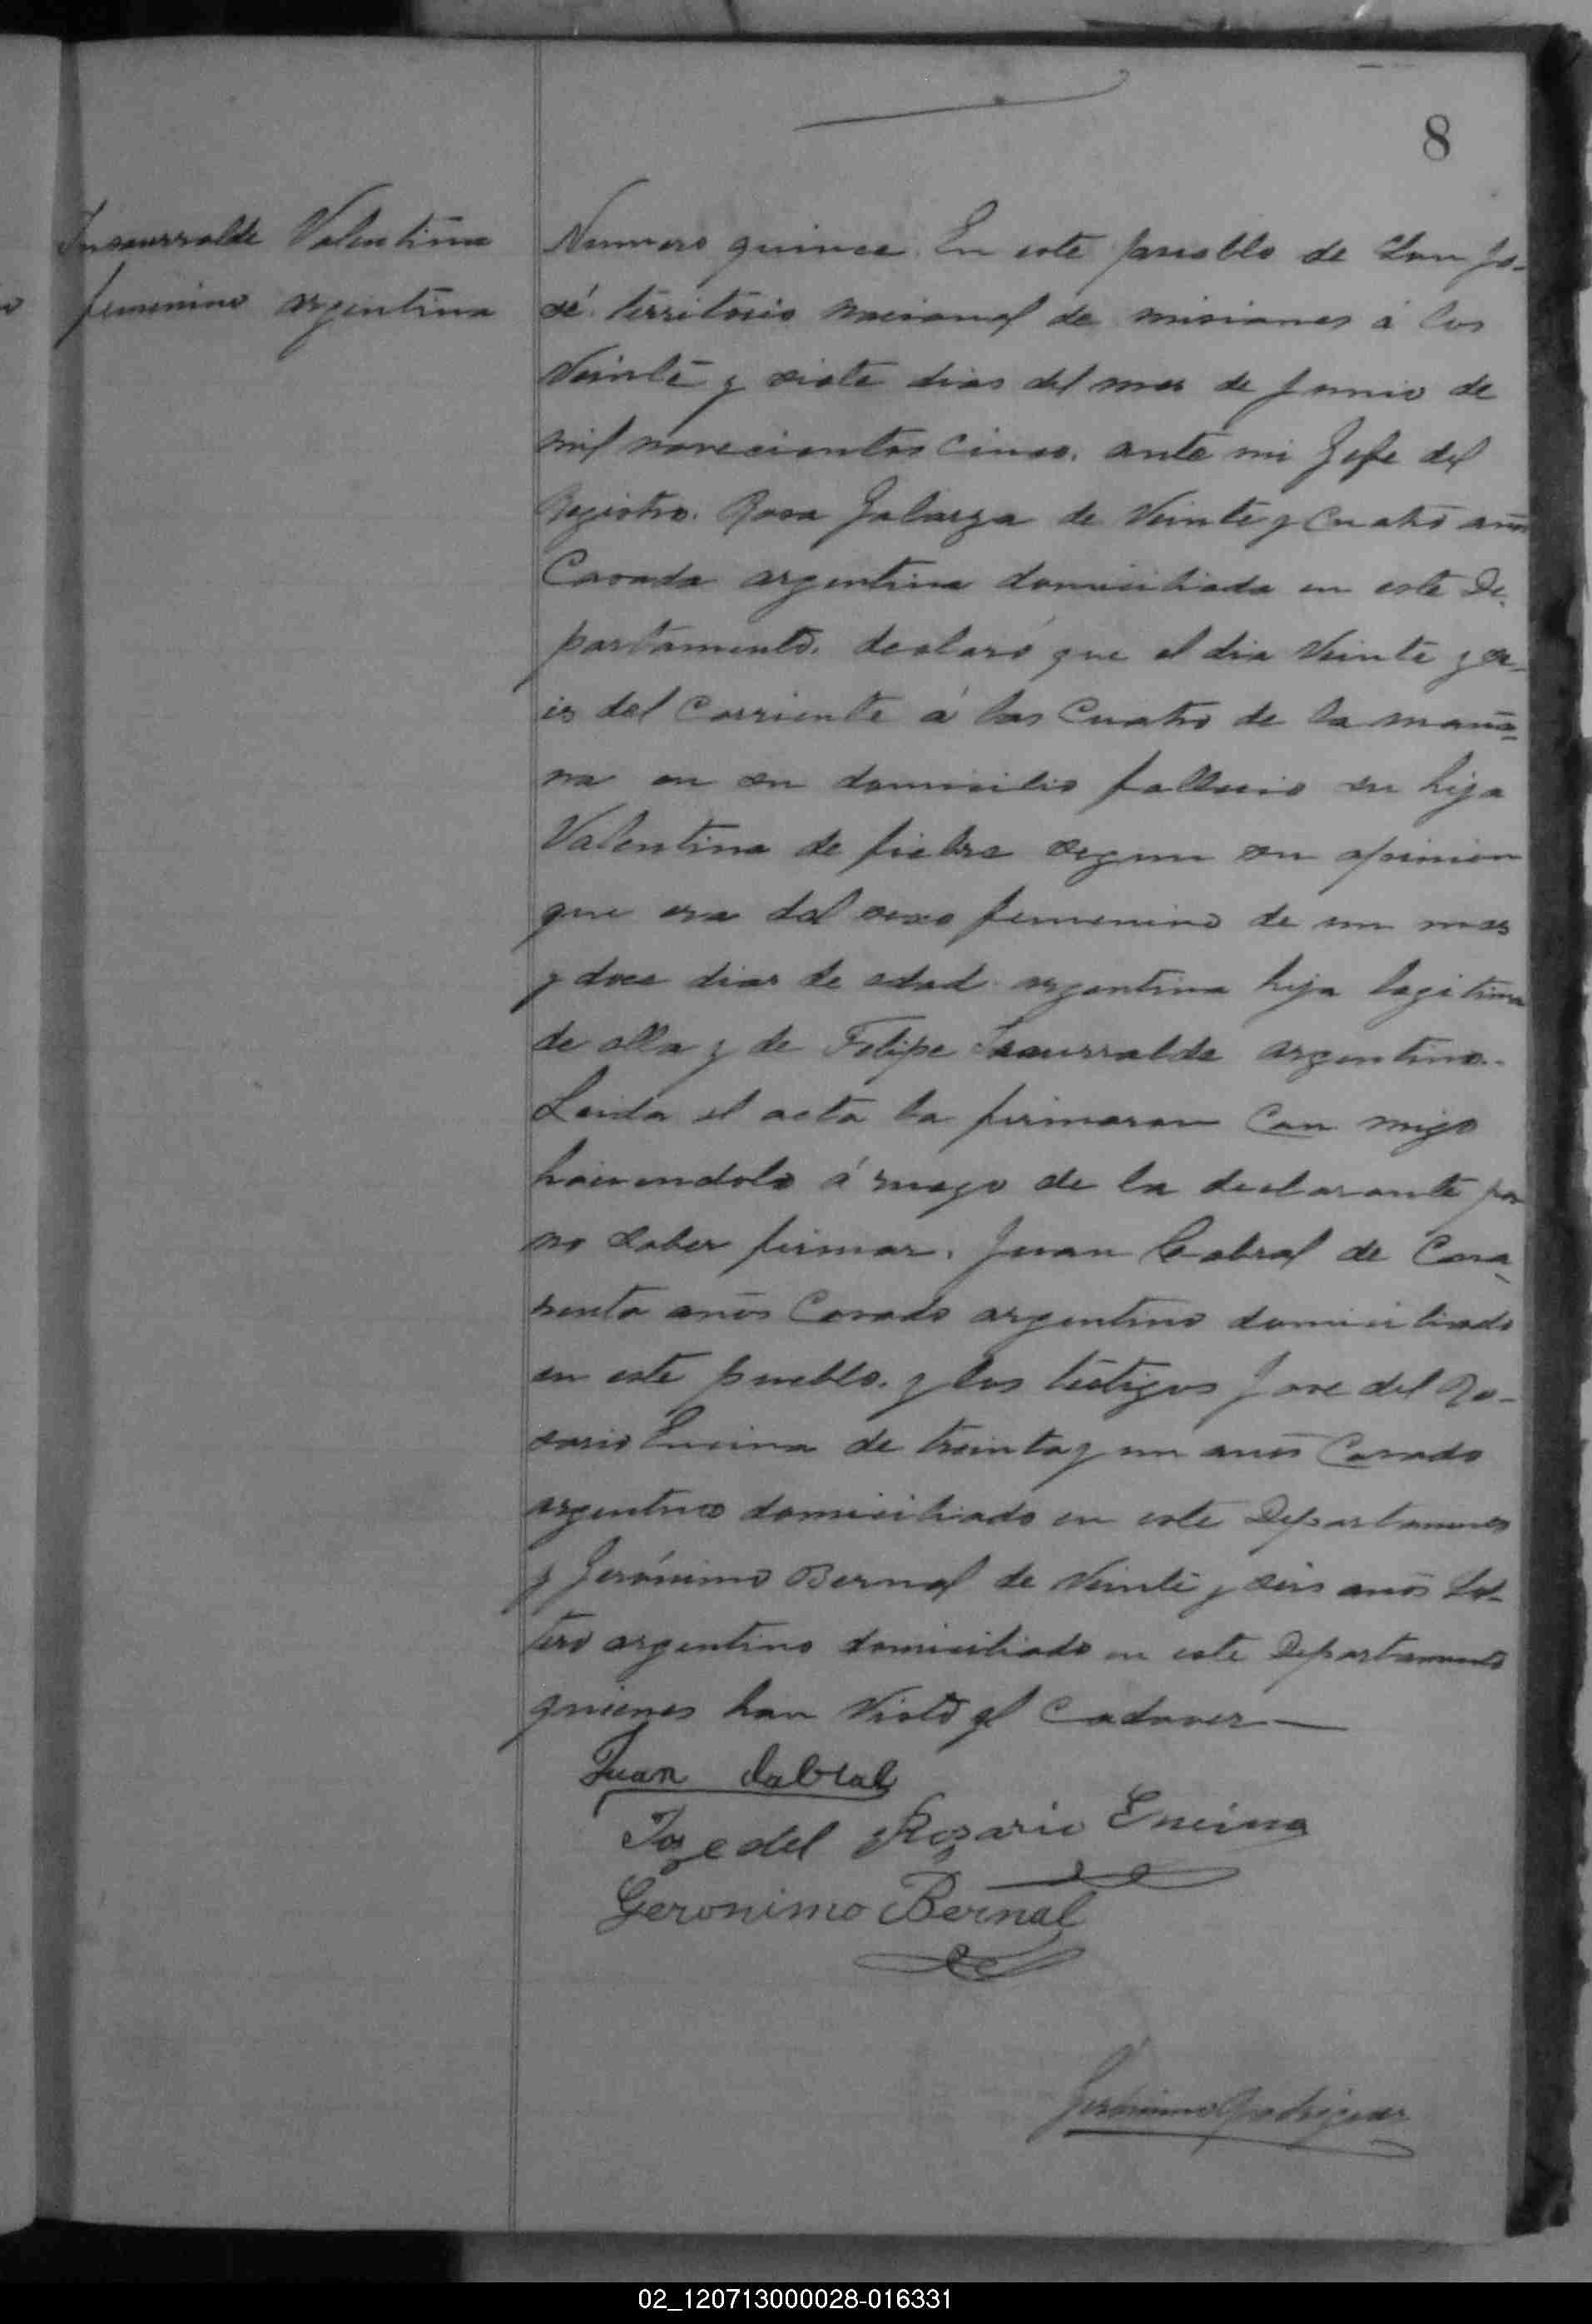 8
Insaurralde Valentina
femenino argentina
Numero quince. En este pueblo de San Jo-
sé territorio nacional de misiones á los
Veinte y siete dias del mes de Junio de
mil novecientos cinco. ante mi Jefe del
Registro. Rosa Galarza de Veinte y Cuatro años
Casada argentina domiciliada en este De-
partamento. declaró que el dia Veinte y se-
is del Corriente á las Cuatro de la maña-
na en su domicilio fallecio su hija
Valentina de fiebre segun su opinion
que era del sexo femenino de un mes
y doce dias de edad argentina hija legitima
de ella y de Felipe Insaurralde argentino.
Leida el acta la firmaron Con migo
haciendolo á ruego de la declarante por
no saber firmar. Juan Cabral de Cua-
renta años Casado argentino domiciliado
en este pueblo. y los testigos Jose del Ro-
sario Encina de treinta y un años Casado
argentino domiciliado en este Departamento
y Jerónimo Bernal de Veinte y seis años Sol-
tero argentino domiciliado en este Departamento
quienes han Visto el Cadaver
Juan Cabral
Joze del Rozario Encina
Geronimo Bernal
Jerónimo Rodriguez
02_120713000028-016331